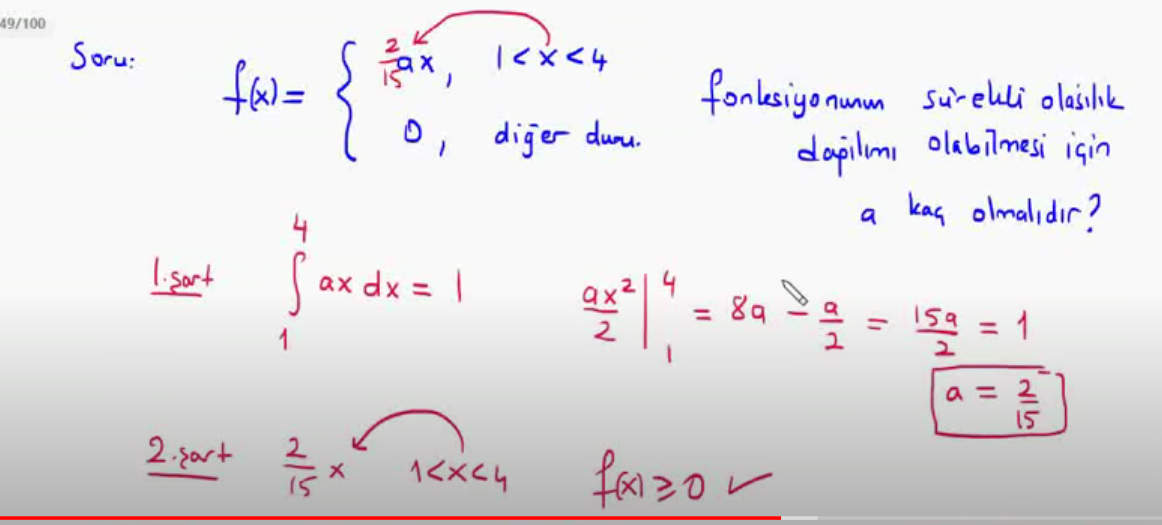 49/100
Soru: f(x) = { 2/15 ax, 1 < x < 4
0, diğer duru.
fonksiyonunun sürekli olasılık
dağılımı olabilmesi için
a kaç olmalıdır?
1.şart ∫₁⁴ ax dx = 1 ax²/2 |₁⁴ = 8a - a/2 = 15a/2 = 1
a = 2/15
2.şart 2/15 x 1<x<4 f(x) ≥ 0 ✓